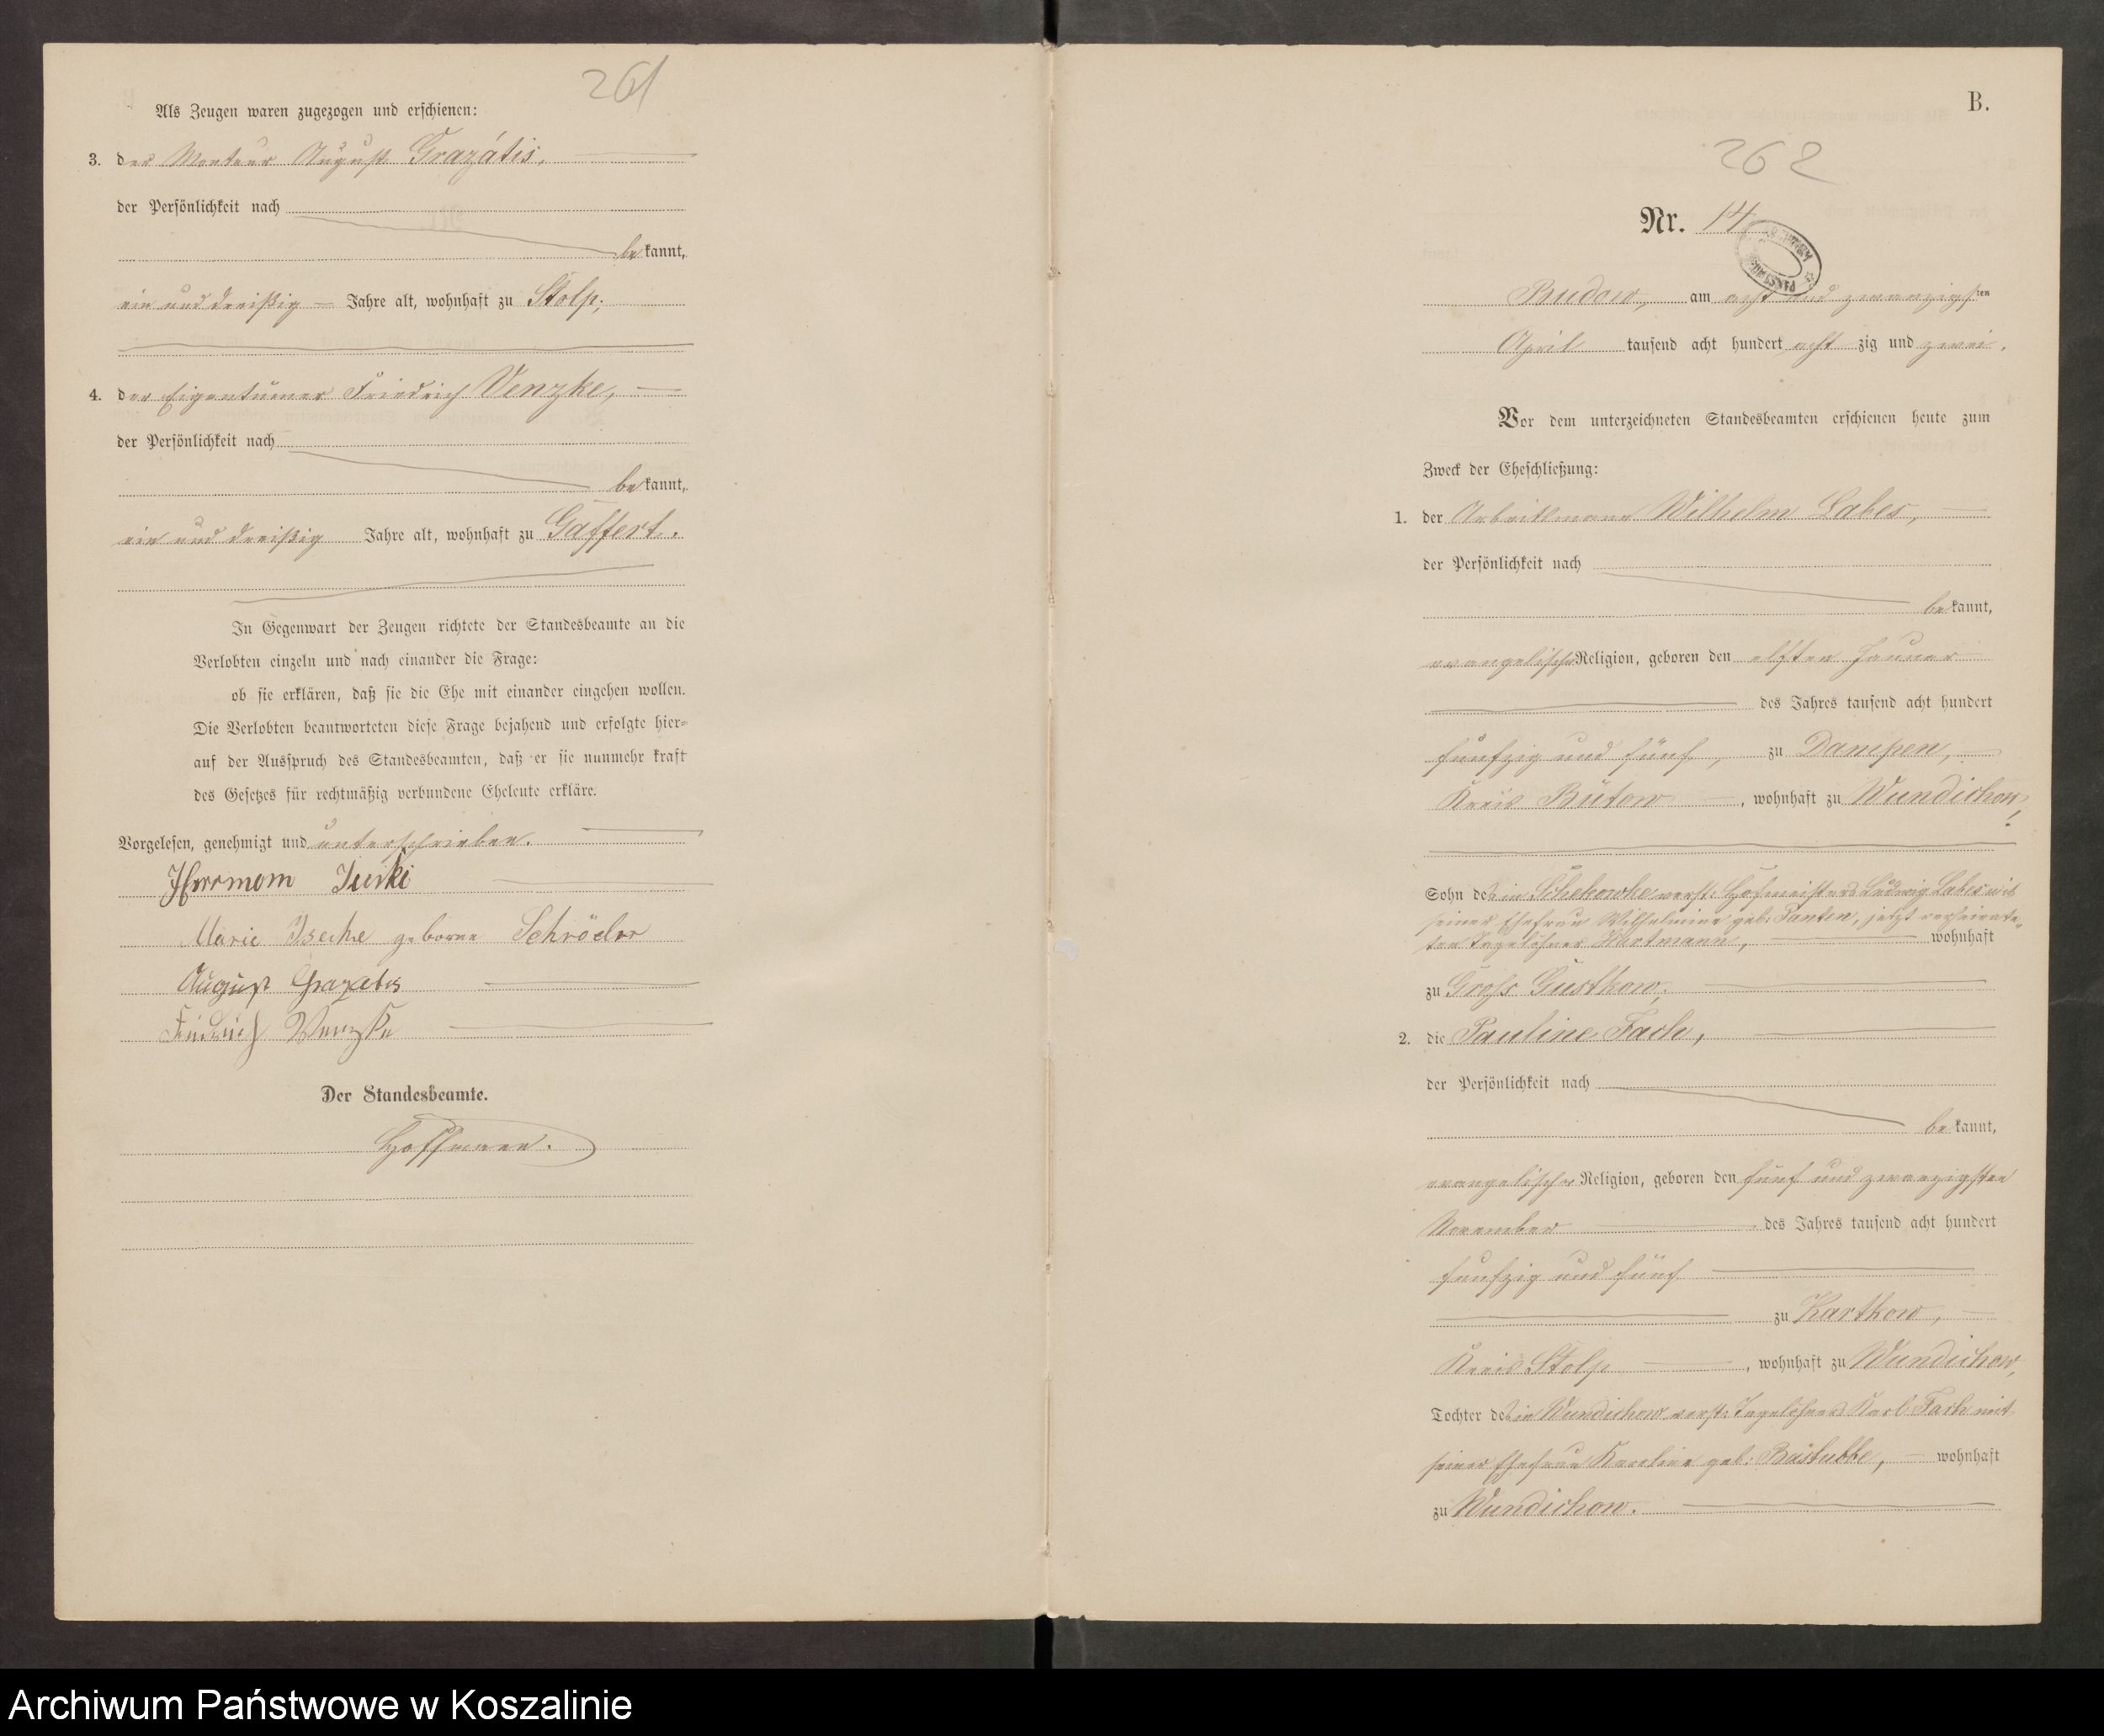 261
Als Zeugen waren zugezogen und erschienen:
3. der Monteur August Grazátis,
der Persönlichkeit nach
be kannt,
ein und dreißig Jahre alt, wohnhaft zu Stolp,
4. der Eigentümer Friedrich Venzke,
der Persönlichkeit nach
be kannt,
ein und dreißig Jahre alt, wohnhaft zu Gaffert.
In Gegenwart der Zeugen richtete der Standesbeamte an die
Verlobten einzeln und nach einander die Frage:
ob sie erklären, daß sie die Ehe mit einander eingehen wollen.
Die Verlobten beantworteten diese Frage bejahend und erfolgte hier-
auf der Ausspruch des Standesbeamten, daß er sie nunmehr kraft
des Gesetzes für rechtmäßig verbundene Eheleute erkläre.
Vorgelesen, genehmigt und unterschrieben.
Marie geborne Schröder
August Grazatis
Friedrich Venzke
Der Standesbeamte.
Hoffmann.
B.
262
Nr. 14
Budow, am acht und zwanzigsten
April tausend acht hundert acht zig und zwei.
Vor dem unterzeichneten Standesbeamten erschienen heute zum
Zweck der Eheschließung:
1. der Arbeitsmann Wilhelm Labes,
der Persönlichkeit nach
be kannt,
evangelischer Religion, geboren den elften Januar
des Jahres tausend acht hundert
fünfzig und fünf, zu Dampen,
Kreis Bütow, wohnhaft zu Wundichow,
Sohn des in verst: Hofmeisters Ludwig Labes mit
seiner Ehefrau Wilhelmine geb: jetzt verheirate-
ten Tagelöhner Hartmann, wohnhaft
zu Gross Gustkow,
2. die Pauline Fach,
der Persönlichkeit nach
be kannt,
evangelischer Religion, geboren den fünf und zwanzigsten
November des Jahres tausend acht hundert
fünfzig und fünf
zu Kartkow,
Kreis Stolp, wohnhaft zu Wundichow,
Tochter des in Wundichow verst: Tagelöhners Karl Fach mit
seiner Ehefrau Karoline geb: wohnhaft
zu Wundichow.
Archiwum Państwowe w Koszalinie